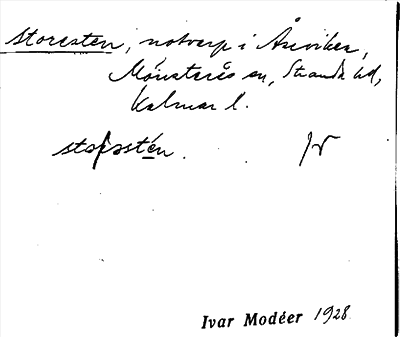 storesten, notvarp i Åseviken,
Mönsterås sn, Stranda hd,
Kalmar l.
Ivar Modéer 1928